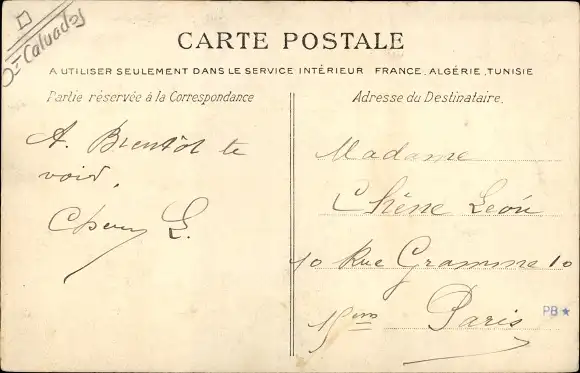 Calvados
CARTE POSTALE
A UTILISER SEULEMENT DANS LE SERVICE INTÉRIEUR FRANCE, ALGÉRIE, TUNISIE
Partie réservée à la Correspondance
Adresse du Destinataire.
A. Bientôt te
voir.
L.
Madame
Chêne Léon
10 Rue Gramme 10
15eme Paris
PB★